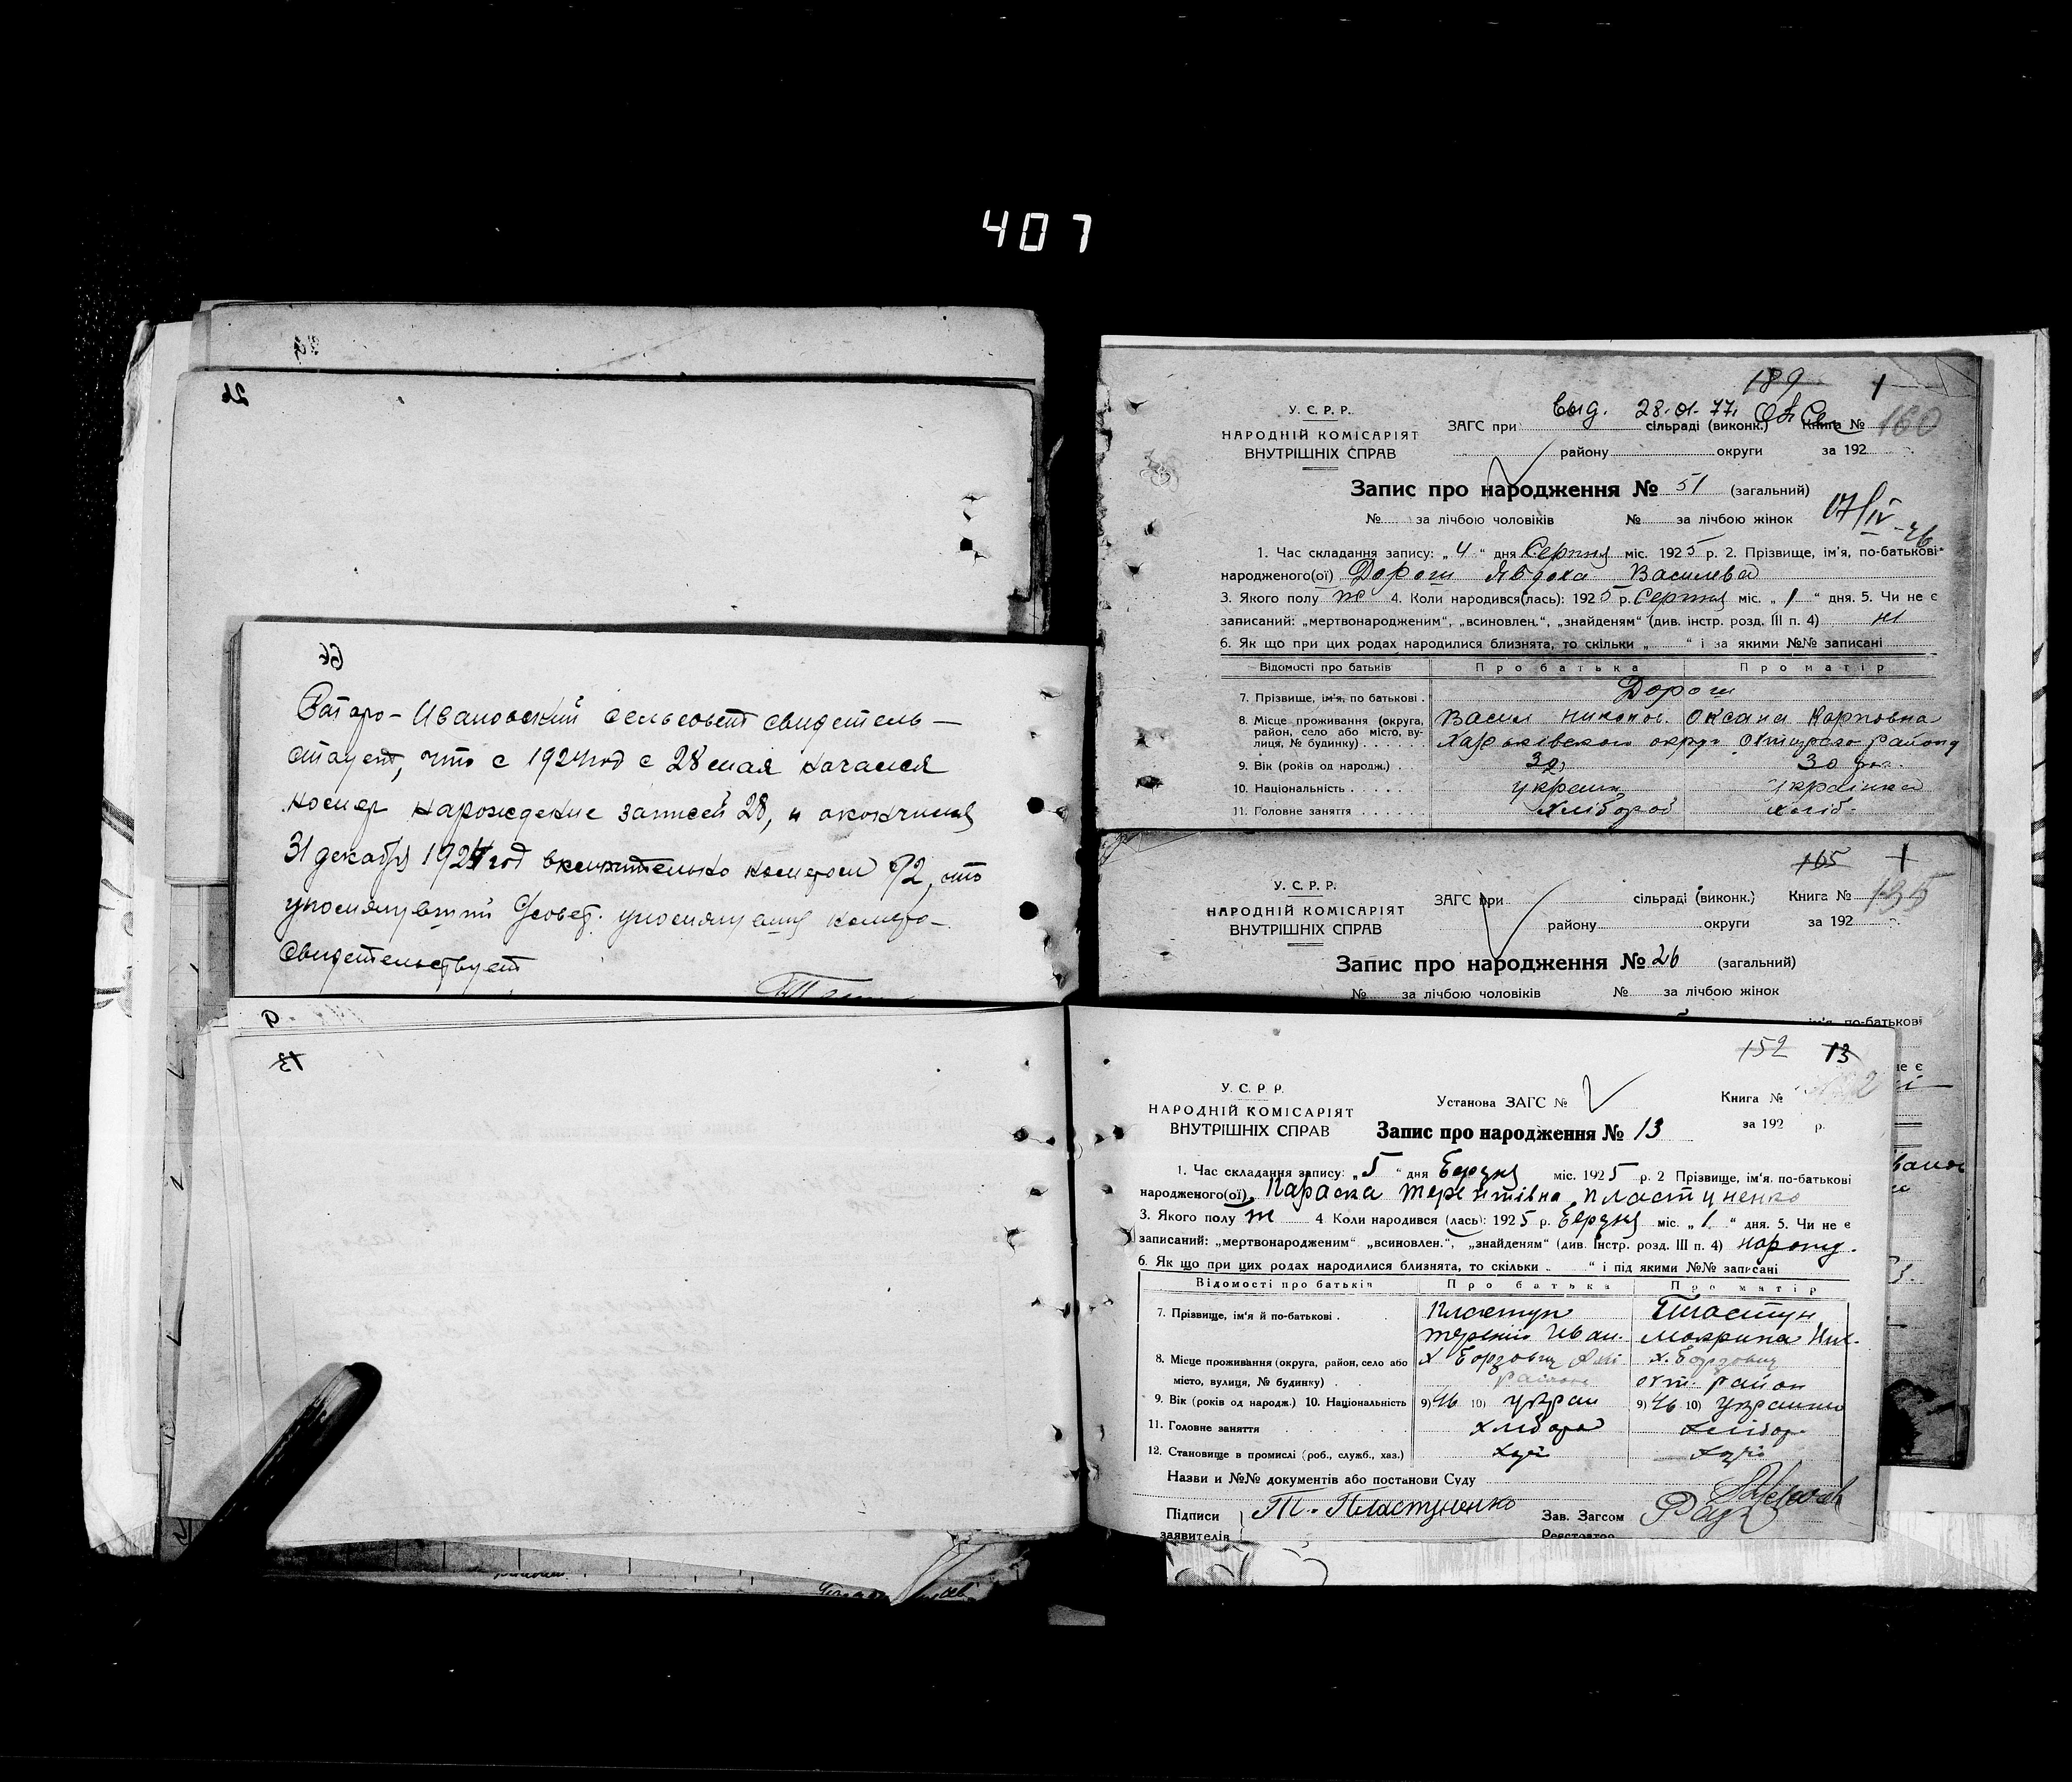 407
26
66
Ивановский сельсовет свидетель-
ствует, что с 1924 год с 28 мая начался
номер нарождение записей 28, и окончился
31 декабря 1924 год включительно номером 92, что
свидетельствует
9
13
189 1
У. С. Р. Р. выд. 28.01.77.
НАРОДНІЙ КОМІСАРІЯТ ЗАГС при сільраді (виконк.) Книга № 160
ВНУТРІШНІХ СПРАВ району округи за 192
Запис про народження № 51 (загальний)
№ за лічбою чоловіків № за лічбою жінок 17/IV-26
1. Час складання запису: „ 4 “ дня Серпня міс. 1925 р. 2. Прізвище, ім'я, по-батькові
народженого(ої) Дорош Явдоха Василева
3. Якого полу ж 4. Коли народився(лась): 1925 р. Серпня міс. „ 1 “ дня. 5. Чи не є
записаний: „мертвонародженим“, „всиновлен.“, „знайденям“ (див. інстр. розд. III п. 4) ні
6. Як що при цих родах народилися близнята, то скільки „ “ і за якими №№ записані
Відомості про батьків Про батька Про матір
7. Прізвище, ім'я, по батькові Дорош
8. Місце проживання (округа, Васил Никонов. Оксана Карповна
район, село або місто, ву-
лиця, № будинку) Харьківского округ району
9. Вік (років од народж.) 32 30
10. Національність україн. українка
11. Головне заняття хлібороб хліб.
165 1
У. С. Р. Р.
НАРОДНІЙ КОМІСАРІЯТ ЗАГС при сільраді (виконк.) Книга № 135
ВНУТРІШНІХ СПРАВ району округи за 192
Запис про народження № 26 (загальний)
№ за лічбою чоловіків № за лічбою жінок
ім'я, по-батькові
не є
152 13
У. С. Р. Р.
НАРОДНІЙ КОМІСАРІЯТ Установа ЗАГС № Книга №
ВНУТРІШНІХ СПРАВ Запис про народження № 13 за 192 р.
1. Час складання запису: „ 5 “ дня Березня міс. 1925 р. 2 Прізвище, ім'я. по-батькові
народженого(ої) Параска Терентівна Пластуненко
3. Якого полу ж 4 Коли народився (лась): 1925 р. Березня міс. „ 1 “ дня. 5. Чи не є
записаний: „мертвонародженим“ „всиновлен.“, „знайденям“ (див. Інстр. розд. III п. 4) нарожд.
6. Як що при цих родах народилися близнята, то скільки „ “ і під якими №№ записані
Відомості про батьків Про батька Про матір
7. Прізвище, ім'я й по-батькові Пластун Пластун
Терентій Иван. Мокрина Ник.
8. Місце проживання (округа, район, село або х. Борзовщ х. Борзовщ
місто, вулиця, № будинку) района охт. район
9. Вік (років од народж.) 10. Національність 9) 46 10) украи 9) 46 10) украинка
11. Головне заняття хлібороб хлібор.
12. Становище в промислі (роб., служб., хаз.)
Назви и №№ документів або постанови Суду
Підписи Т. Пластуненко Зав. Загсом
заявителів Реєстратор